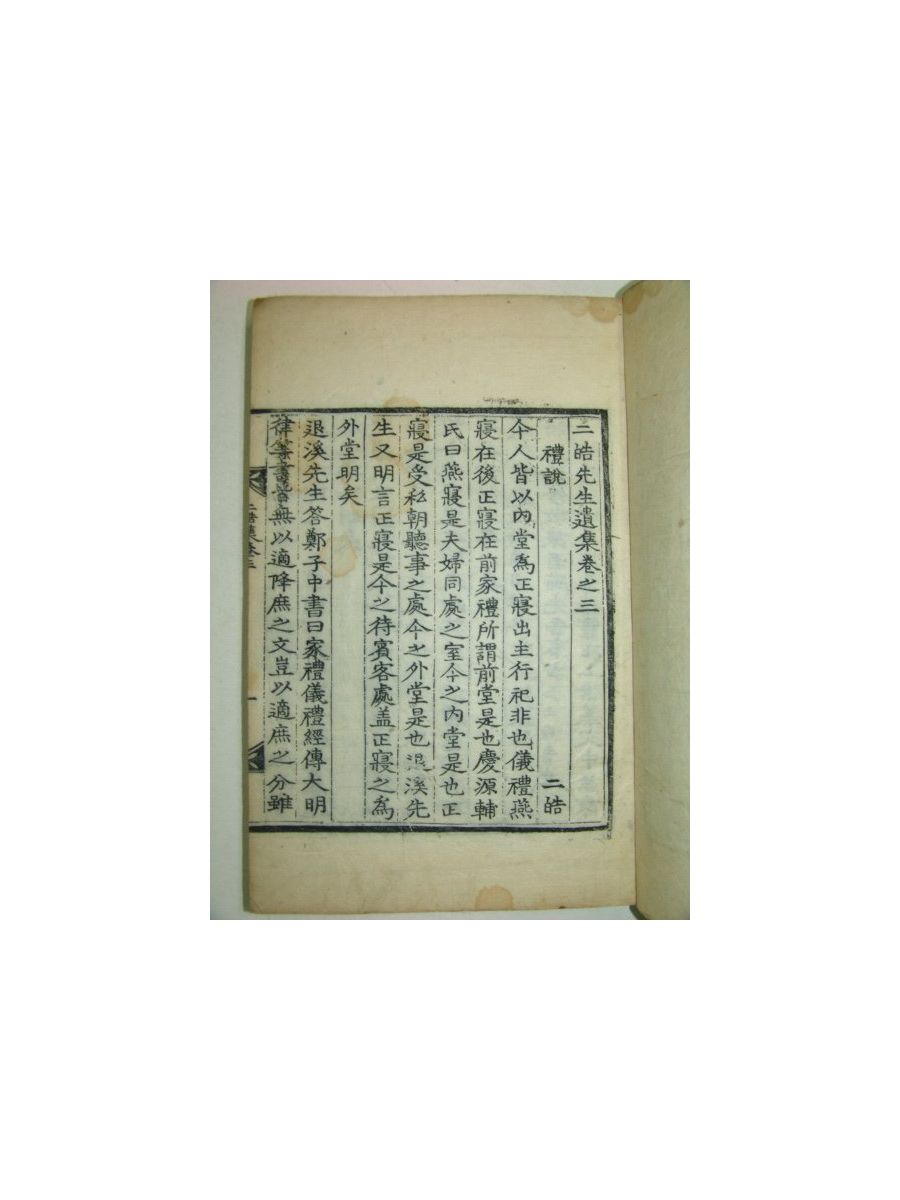 二皓先生遺集卷之三
禮說 二皓
今人皆以內堂爲正寢出主行祀非也儀禮燕
寢在後正寢在前家禮所謂前堂是也慶源輔
氏曰燕寢是夫婦同處之室今之內堂是也正
寢是受私朝聽事之處今之外堂是也退溪先
生又明言正寢是今之待賓客處盖正寢之爲
外堂明矣
退溪先生答鄭子中書曰家禮儀禮經傳大明
律等書皆無以適降庶之文豈以適庶之分雖
二皓集卷三
一